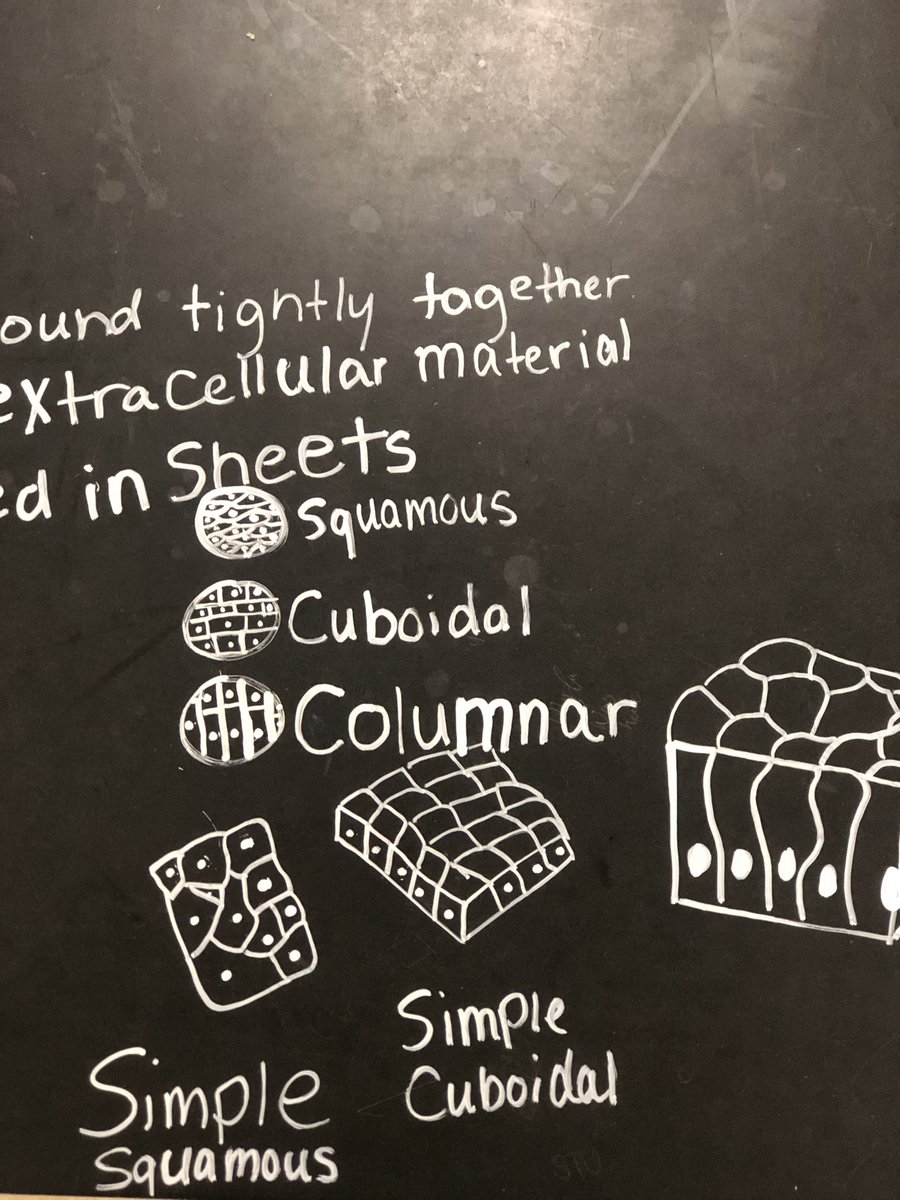 ound tightly together
extracellular material
ed in Sheets
Squamous
Cuboidal
Columnar
Simple
Cuboidal
Simple
Squamous